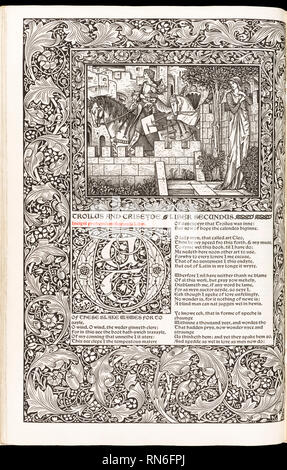 TROILUS AND CRISEYDE. LIBER SECUNDUS.
OF THESE BLAKE WAWES FOR TO
saylle,
O wind, O wind, the weder ginneth clere;
For in this see the boot hath swich travayle,
Of my conning that unnethe I it stere:
This see clepe I the tempestous matere
Of desespeyr that Troilus was inne:
But now of hope the calendes biginne.
O lady myn, that called art Cleo,
Thou be my speed fro this forth, & my muse,
To ryme wel this book, til I have do;
Me nedeth here noon other art to use.
Forwhy to every lovere I me excuse,
That of no sentement I this endyte,
But out of Latin in my tonge it wryte.
Wherfore I nil have neither thank ne blame
Of al this werk, but prey yow mekely,
Disblameth me, if any word be lame,
For as myn auctor seyde, so sey I,
Eek though I speke of love unfelingly,
No wonder is, for it nothing of newe is;
A blind man can nat juggen wel in hewis.
Ye knowe eek, that in forme of speche is
chaunge
Withinne a thousand yeer, and wordes tho
That hadden prys, now wonder nyce and
straunge
Us thinketh hem; and yet they spake hem so,
And spedde as wel in love as men now do;
alamy
RN6FPJ